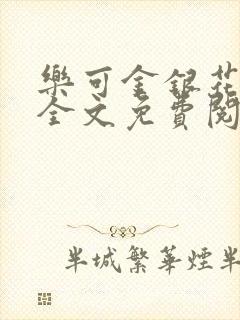 樂可金銀花
全文免費閱
半城繁華煙半